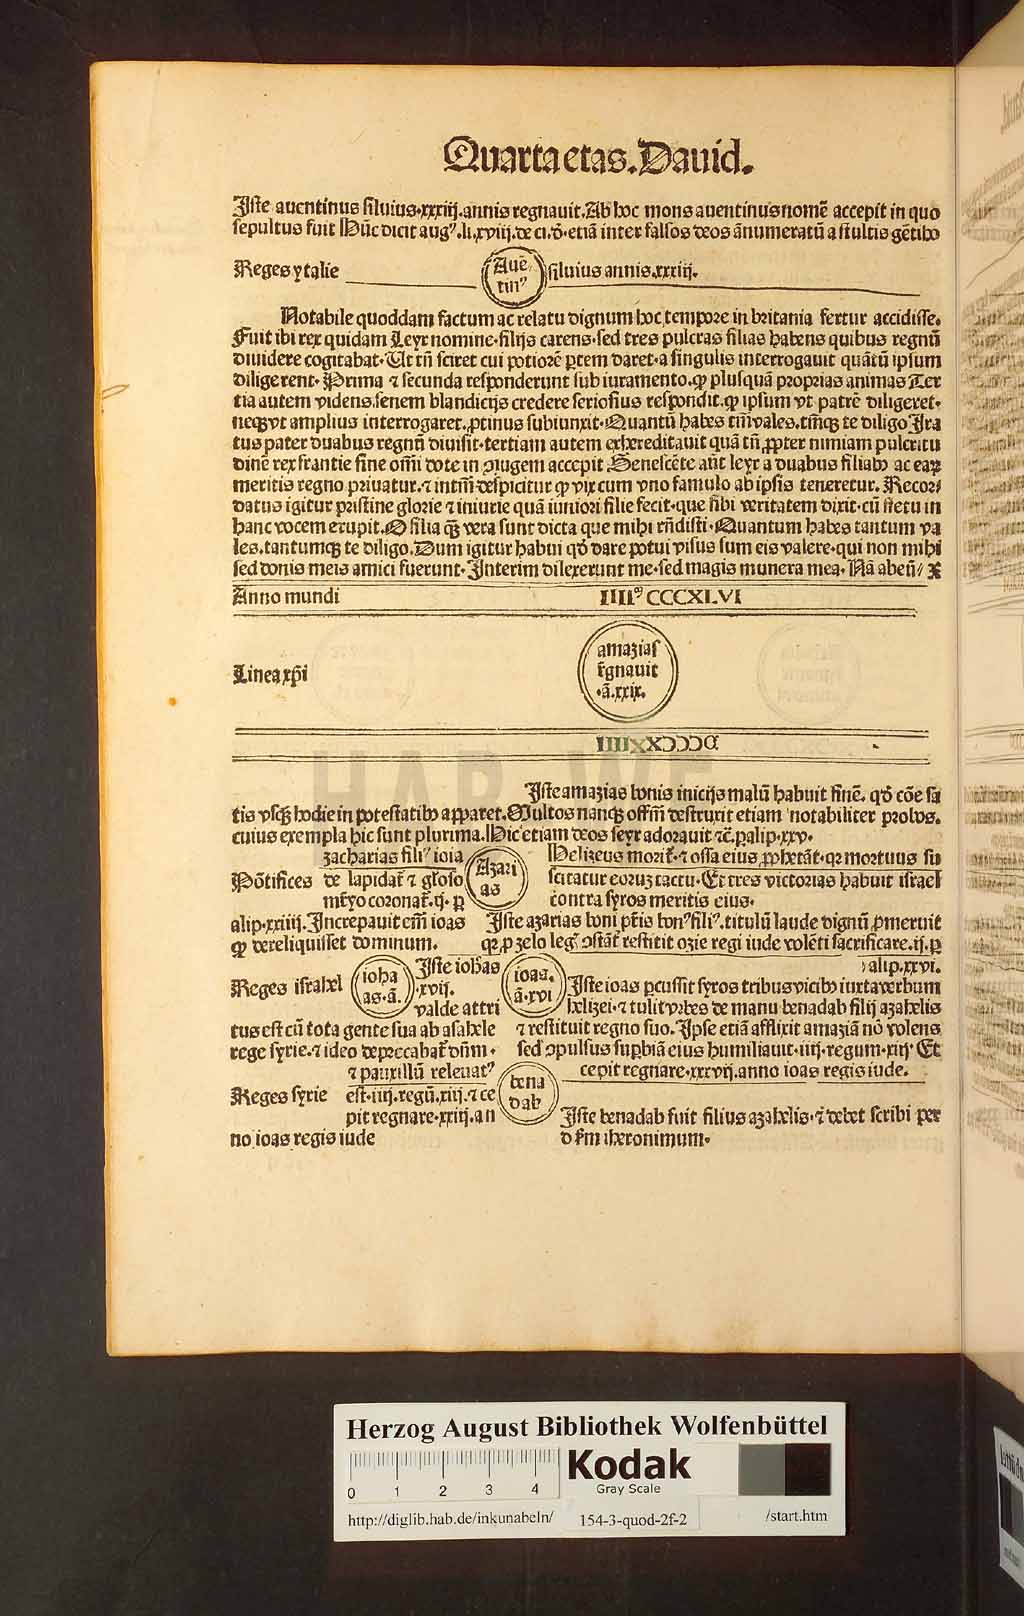 Quarta etas. Dauid.
Iste auentinus siluius.xxxiij.annis regnauit. Ab hoc mons auentinus nomē accepit in quo
sepultus fuit Hūc dicit augꝰ.li.xviij.de ci.đ.etiā inter falsos deos ānumeratū a stultis gētibꝫ
Reges ytalie
Auē
tinꝰ
siluius annis.xxxiij.
Notabile quoddam factum ac relatu dignum hoc tempore in britania fertur accidisse.
Fuit ibi rex quidam Leyr nomine.filijs carens.sed tres pulcras filias habens quibus regnū
diuidere cogitabat. Ut tn̄ sciret cui potiorē ꝑtem daret.a singulis interrogauit quātū ipsum
diligerent. Prima ⁊ secunda responderunt sub iuramento.ꝙ plusquā proprias animas Ter
tia autem videns.senem blandicijs credere seriosius respondit.ꝙ ipsum vt patrē diligeret.
neqꝫ vt amplius interrogaret.ꝓtinus subiunxit. Quantū habes tm̄ vales.tm̄qꝫ te diligo Ira
tus pater duabus regnū diuisit.tertiam autem exhereditauit quā tn̄ ꝓpter nimiam pulcritu
dinē rex frantie sine om̄i dote in ꝯiugem accepit Senescēte aūt leyr a duabus filiabꝫ ac eaꝝ
meritis regno priuatur.⁊ intm̄ despicitur ꝙ vix cum vno famulo ab ipsis teneretur. Recor⸗
datus igitur pristine glorie ⁊ iniurie quā iuniori filie fecit.que sibi veritatem dixit.cū fletu in
hanc vocem erupit. O filia qꝫ vera sunt dicta que mihi rn̄disti. Quantum habes tantum va
les.tantumqꝫ te diligo. Dum igitur habui qđ dare potui visus sum eis valere.qui non mihi
sed donis meis amici fuerunt. Interim dilexerunt me.sed magis munera mea. Nā abeū⸗ x
Anno mundi
IIIIꝰ CCCXLVI
Linea xp̄i
amazias
r̄gnauit
.ā.xxix.
IIIIXXƆƆƆƆ
Iste amazias bonis inicijs malū habuit finē. qđ cōe sa
tis vsqꝫ hodie in potestatibꝫ apparet. Multos nanqꝫ offm̄ destruxit etiam notabiliter probos.
cuius exempla hic sunt plurima. Hic etiam deos seyr adorauit ⁊c̄.palip.xxv.
zacharias filiꝰ ioia
Pōtifices de lapidat̄ ⁊ gl̄oso
mr̄yo coronat̄.ij.p
alip.xxiiij. Increpauit em̄ ioas
ꝙ dereliquisset dominum.
Azari
as
Helizeus morit̄.⁊ ossa eius ꝓphetāt.qꝛ mortuus su
scitatur eorum tactu. Et tres victorias habuit israel
contra syros meritis eius.
Iste azarias boni pr̄is bonꝰ filiꝰ.titulū laude dignū ꝓmeruit
qꝛ p zelo leḡ ꝯstāt̄ restitit ozie regi iude volēti sacrificare.ij.p
alip.xxvi.
Reges israhel
ioha
as.ā.
xvij.
Iste iohas
valde attri
tus est cū tota gente sua ab asahele
rege syrie.⁊ ideo deprecabat̄ dn̄m.
⁊ pauxillū releuatꝰ
est.iiij.regū.xiij.⁊ ce
pit regnare.xxiij.an
no ioas regis iude
ioas.
ā.xvi
Iste ioas ꝑcussit syros tribus vicibꝫ iuxta verbum
helizei.⁊ tulit vrbes de manu benadab filij azahelis
⁊ restituit regno suo. Ipse etiā afflixit amaziā nō volens
sed ꝯpulsus supbiā eius humiliauit.iiij.regum.xiij' Et
cepit regnare.xxxvij.anno ioas regis iude.
Reges syrie
bena
dab
Iste benadab fuit filius azahelis.⁊ debet scribi per
d s̄m iheronimum.
HAB WF
Herzog August Bibliothek Wolfenbüttel
0 1 2 3 4
Kodak
Gray Scale
http://diglib.hab.de/inkunabeln/ 154-3-quod-2f-2 /start.htm